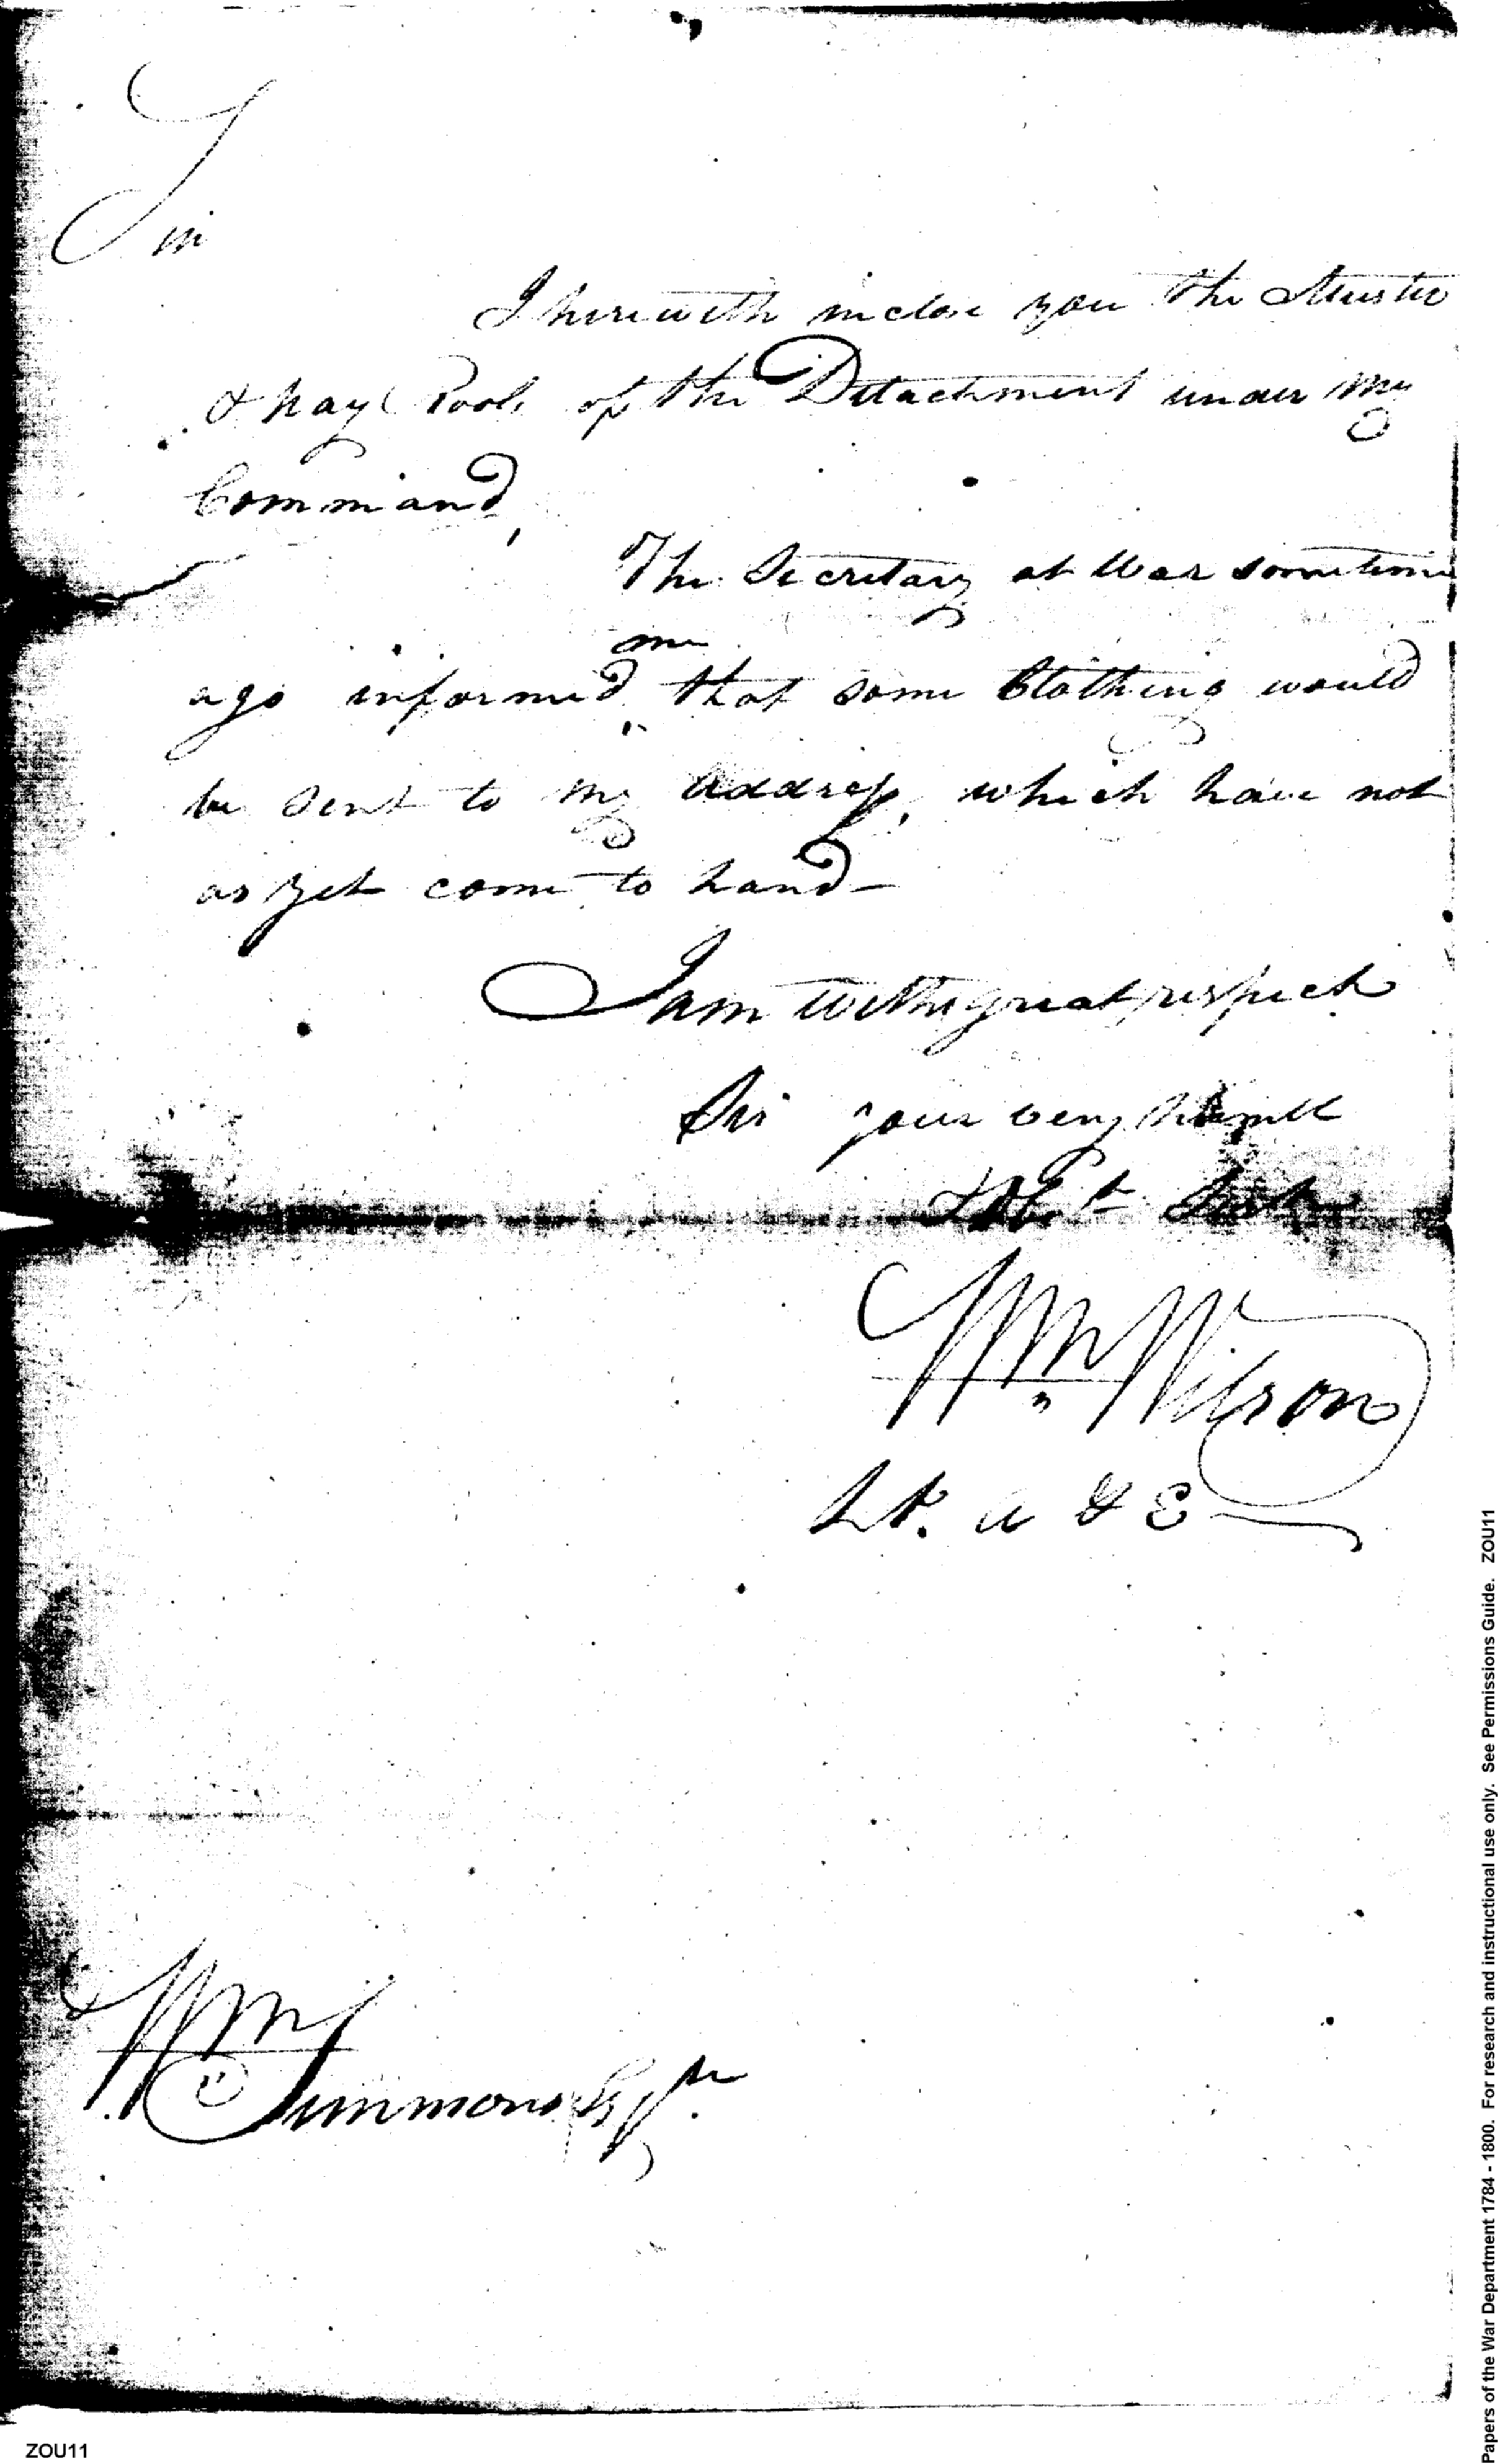 Sir
I herewith inclose you the Muster
& pay Rools of the Detachment under my
Command,
The Secretary at War sometime
me
ago informed, that some Clothing would
be sent to my address, which have not
as yet come to hand -
I am with great respect
Sir your very humble
& Obt
Wm Wilson
Lt. A & E
Wm Simmons Esqr.
Papers of the War Department 1784 - 1800. For research and instructional use only. See Permissions Guide. ZOU11
ZOU11